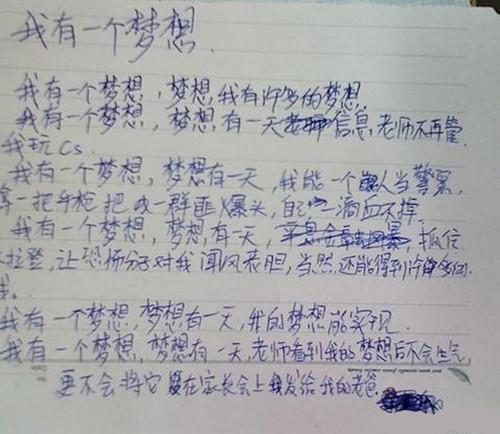 我有一个梦想.
我有一个梦想，梦想我有许多的梦想.
我有一个梦想，梦想有一天信息老师不再管
我玩Cs.
我有一个梦想，梦想有一天，我能一个人当警察，
拿一把手枪把一群匪爆头，自己一滴血不掉.
我有一个梦想，梦想有一天，抓住
拉登，让恐怖分子对我闻风丧胆，当然，还能得到许多
我有一个梦想，梦想有一天，我的梦想能实现.
我有一个梦想，梦想有一天，老师看到我的梦想后不会生气，
更不会将它在家长会上发给我的老爸